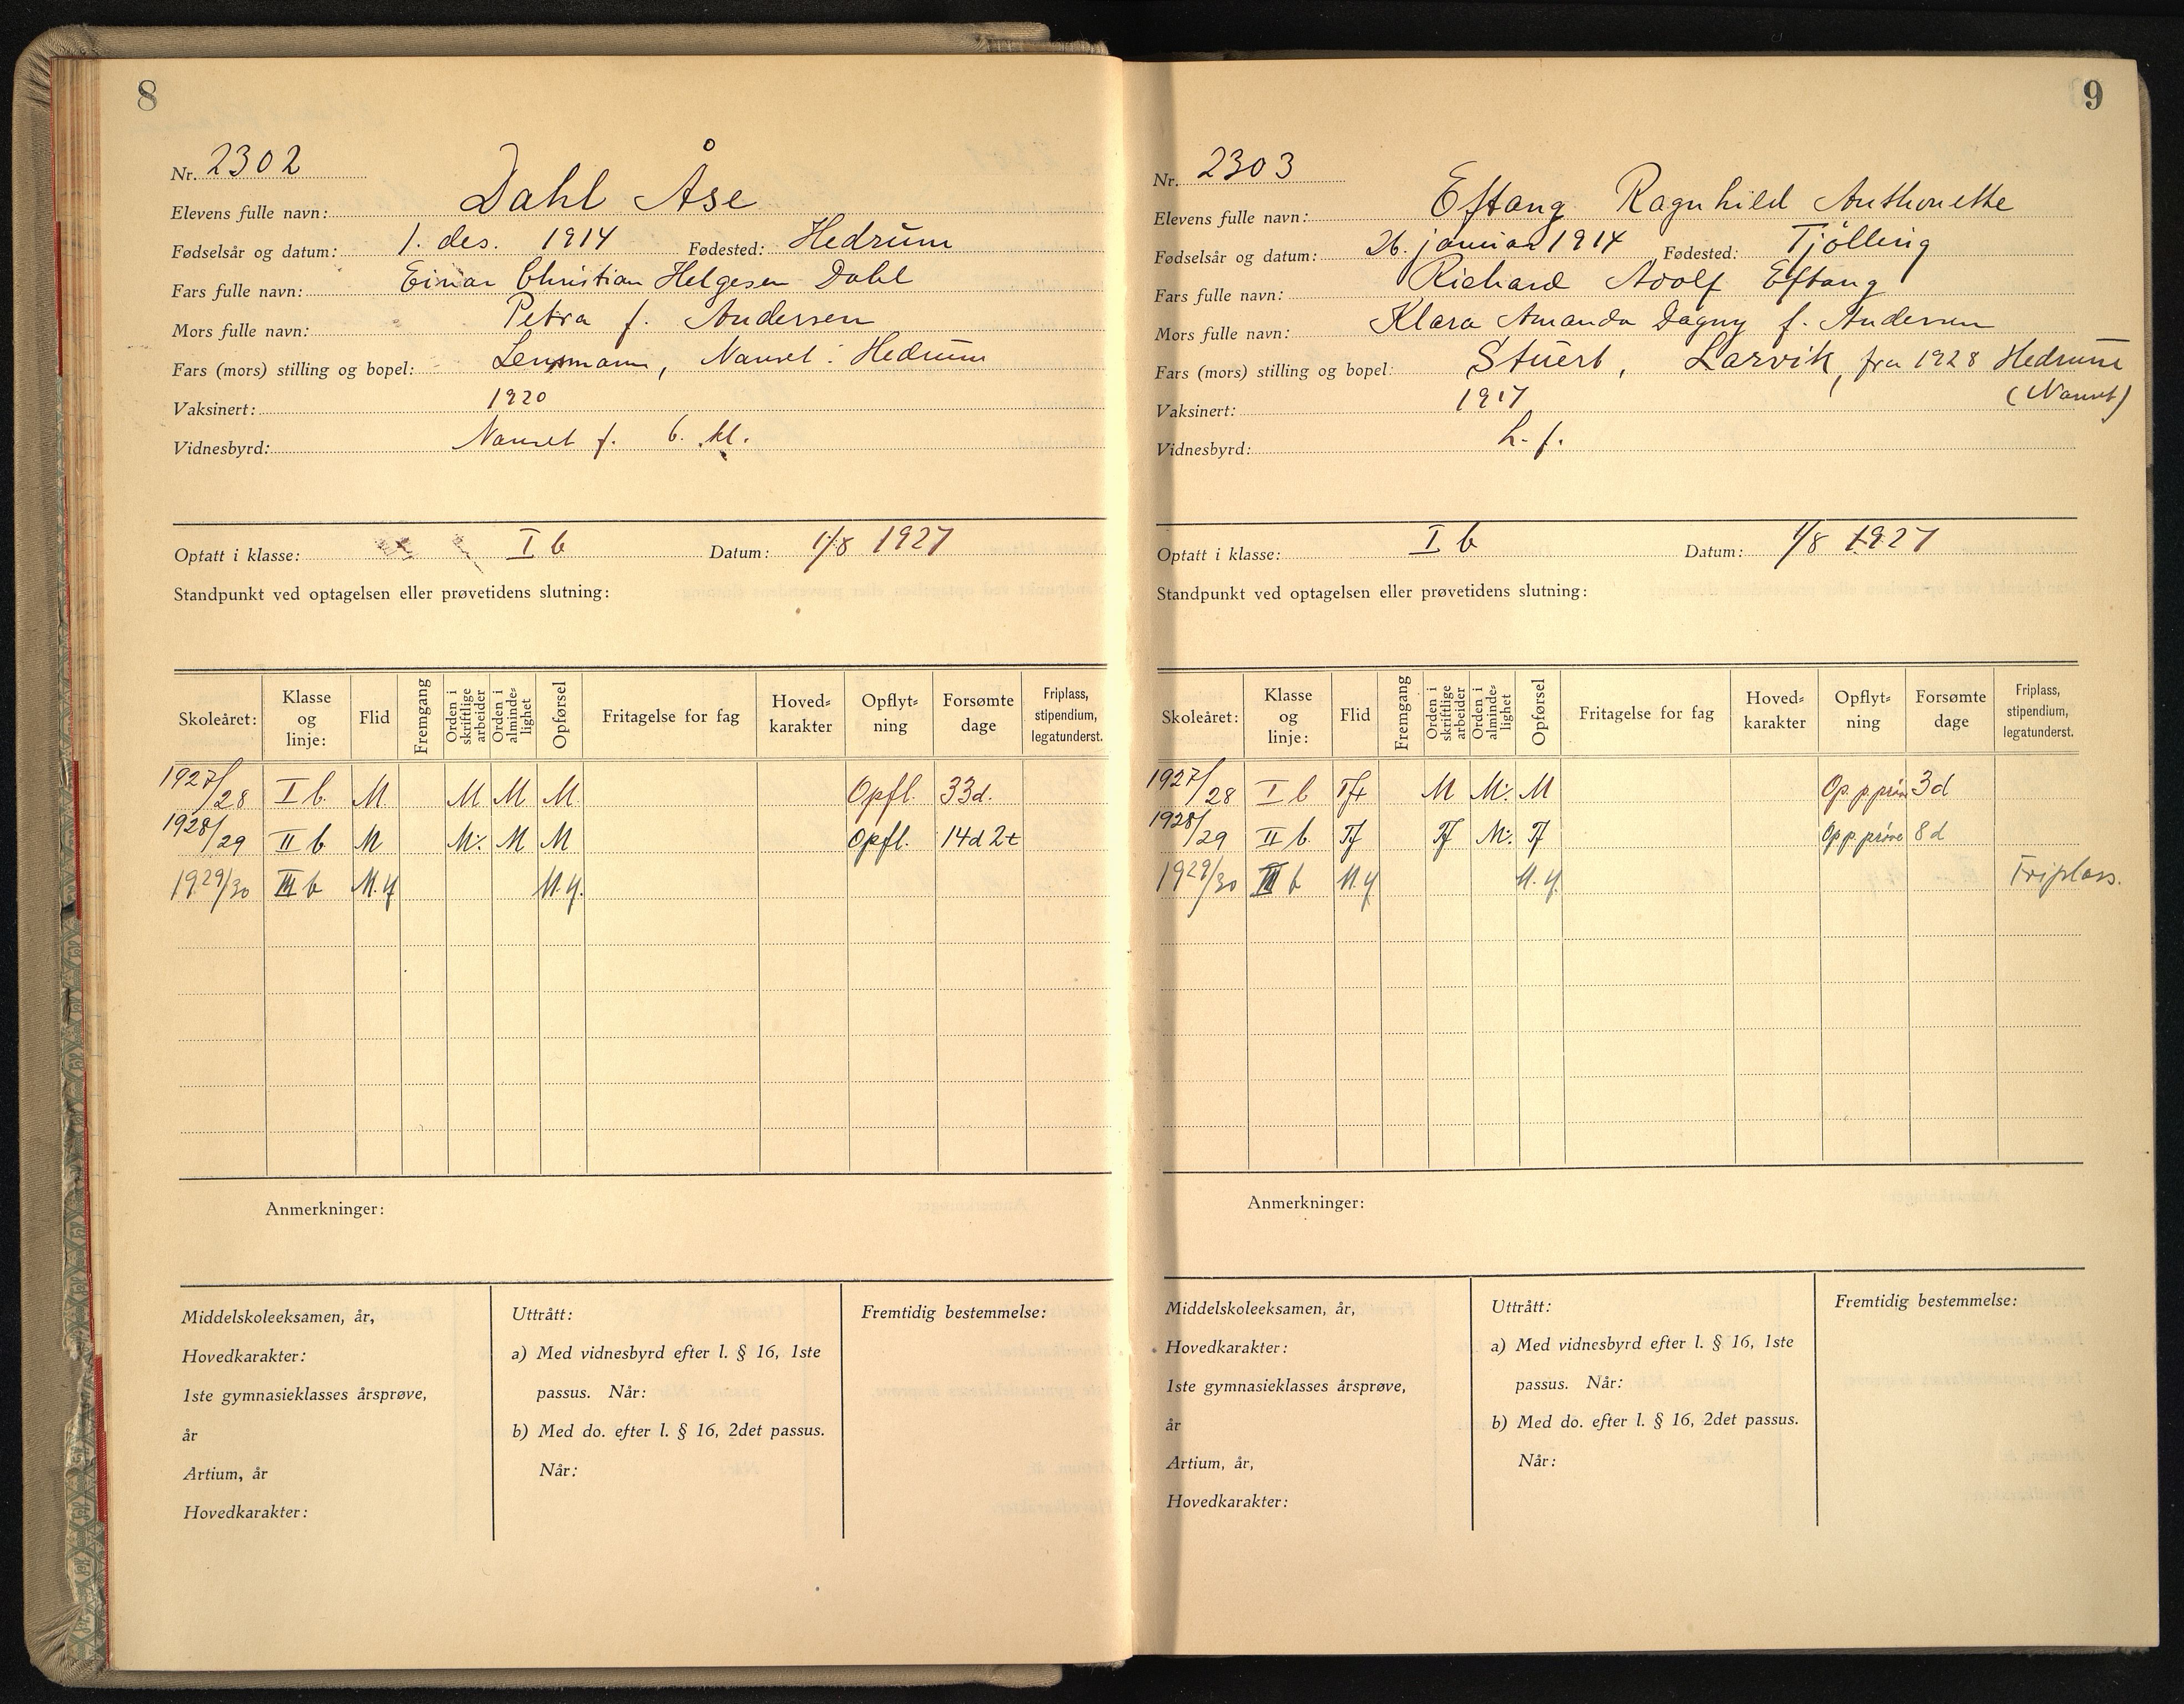 8
Nr. 2302
Elevens fulle navn: Dahl Åse
Fødselsår og datum: 1. des. 1914 Fødested: Hedrum
Fars fulle navn: Einar Christian Helgesen Dahl
Mors fulle navn: Petra f. Andersen
Fars (mors) stilling og bopel: Lensmann, Nanset i Hedrum
Vaksinert: 1920
Vidnesbyrd: Nanset f. 6. kl.
Optatt i klasse: I b Datum: 1/8 1927
Standpunkt ved optagelsen eller prøvetidens slutning:
Skoleåret: Klasse og linje: Flid Fremgang Orden i skriftlige arbeider Orden i almindelighet Opførsel Fritagelse for fag Hoved-karakter Opflyt-ning Forsømte dage Friplass, stipendium, legatunderst.
1927/28 I b. M M M M Opfl. 33d.
1928/29 II b M M: M M Opfl. 14d 2t
1929/30 III b M.y M.y.
Anmerkninger:
Middelskoleeksamen, år,
Hovedkarakter:
1ste gymnasieklasses årsprøve,
år
Artium, år
Hovedkarakter:
Uttrått:
a) Med vidnesbyrd efter l. § 16, 1ste
passus. Når:
b) Med do. efter l. § 16, 2det passus.
Når:
Fremtidig bestemmelse:
9
Nr. 2303
Elevens fulle navn: Eftang Ragnhild Anthonette
Fødselsår og datum: 26. januar 1914 Fødested: Tjølling
Fars fulle navn: Richard Adolf Eftang
Mors fulle navn: Klara Amanda Dagny f. Andersen
Fars (mors) stilling og bopel: Stuert, Larvik, fra 1928 Hedrum
(Nanset)
Vaksinert: 1917
Vidnesbyrd: L. f.
Optatt i klasse: I b Datum: 1/8 1927
Standpunkt ved optagelsen eller prøvetidens slutning:
Skoleåret: Klasse og linje: Flid Fremgang Orden i skriftlige arbeider Orden i almindelighet Opførsel Fritagelse for fag Hoved-karakter Opflyt-ning Forsømte dage Friplass, stipendium, legatunderst.
1927/28 I b Tf+ M M: M Op. p. prøve 3d
1928/29 II b. Tf Tf M: Tf Op p. prøve 8 d
1929/30 III b M.y M.y. Friplass.
Anmerkninger:
Middelskoleeksamen, år,
Hovedkarakter:
1ste gymnasieklasses årsprøve,
år
Artium, år,
Hovedkarakter:
Uttrått:
a) Med vidnesbyrd efter l. § 16, 1ste
passus. Når:
b) Med do. efter l. § 16, 2det passus.
Når:
Fremtidig bestemmelse: